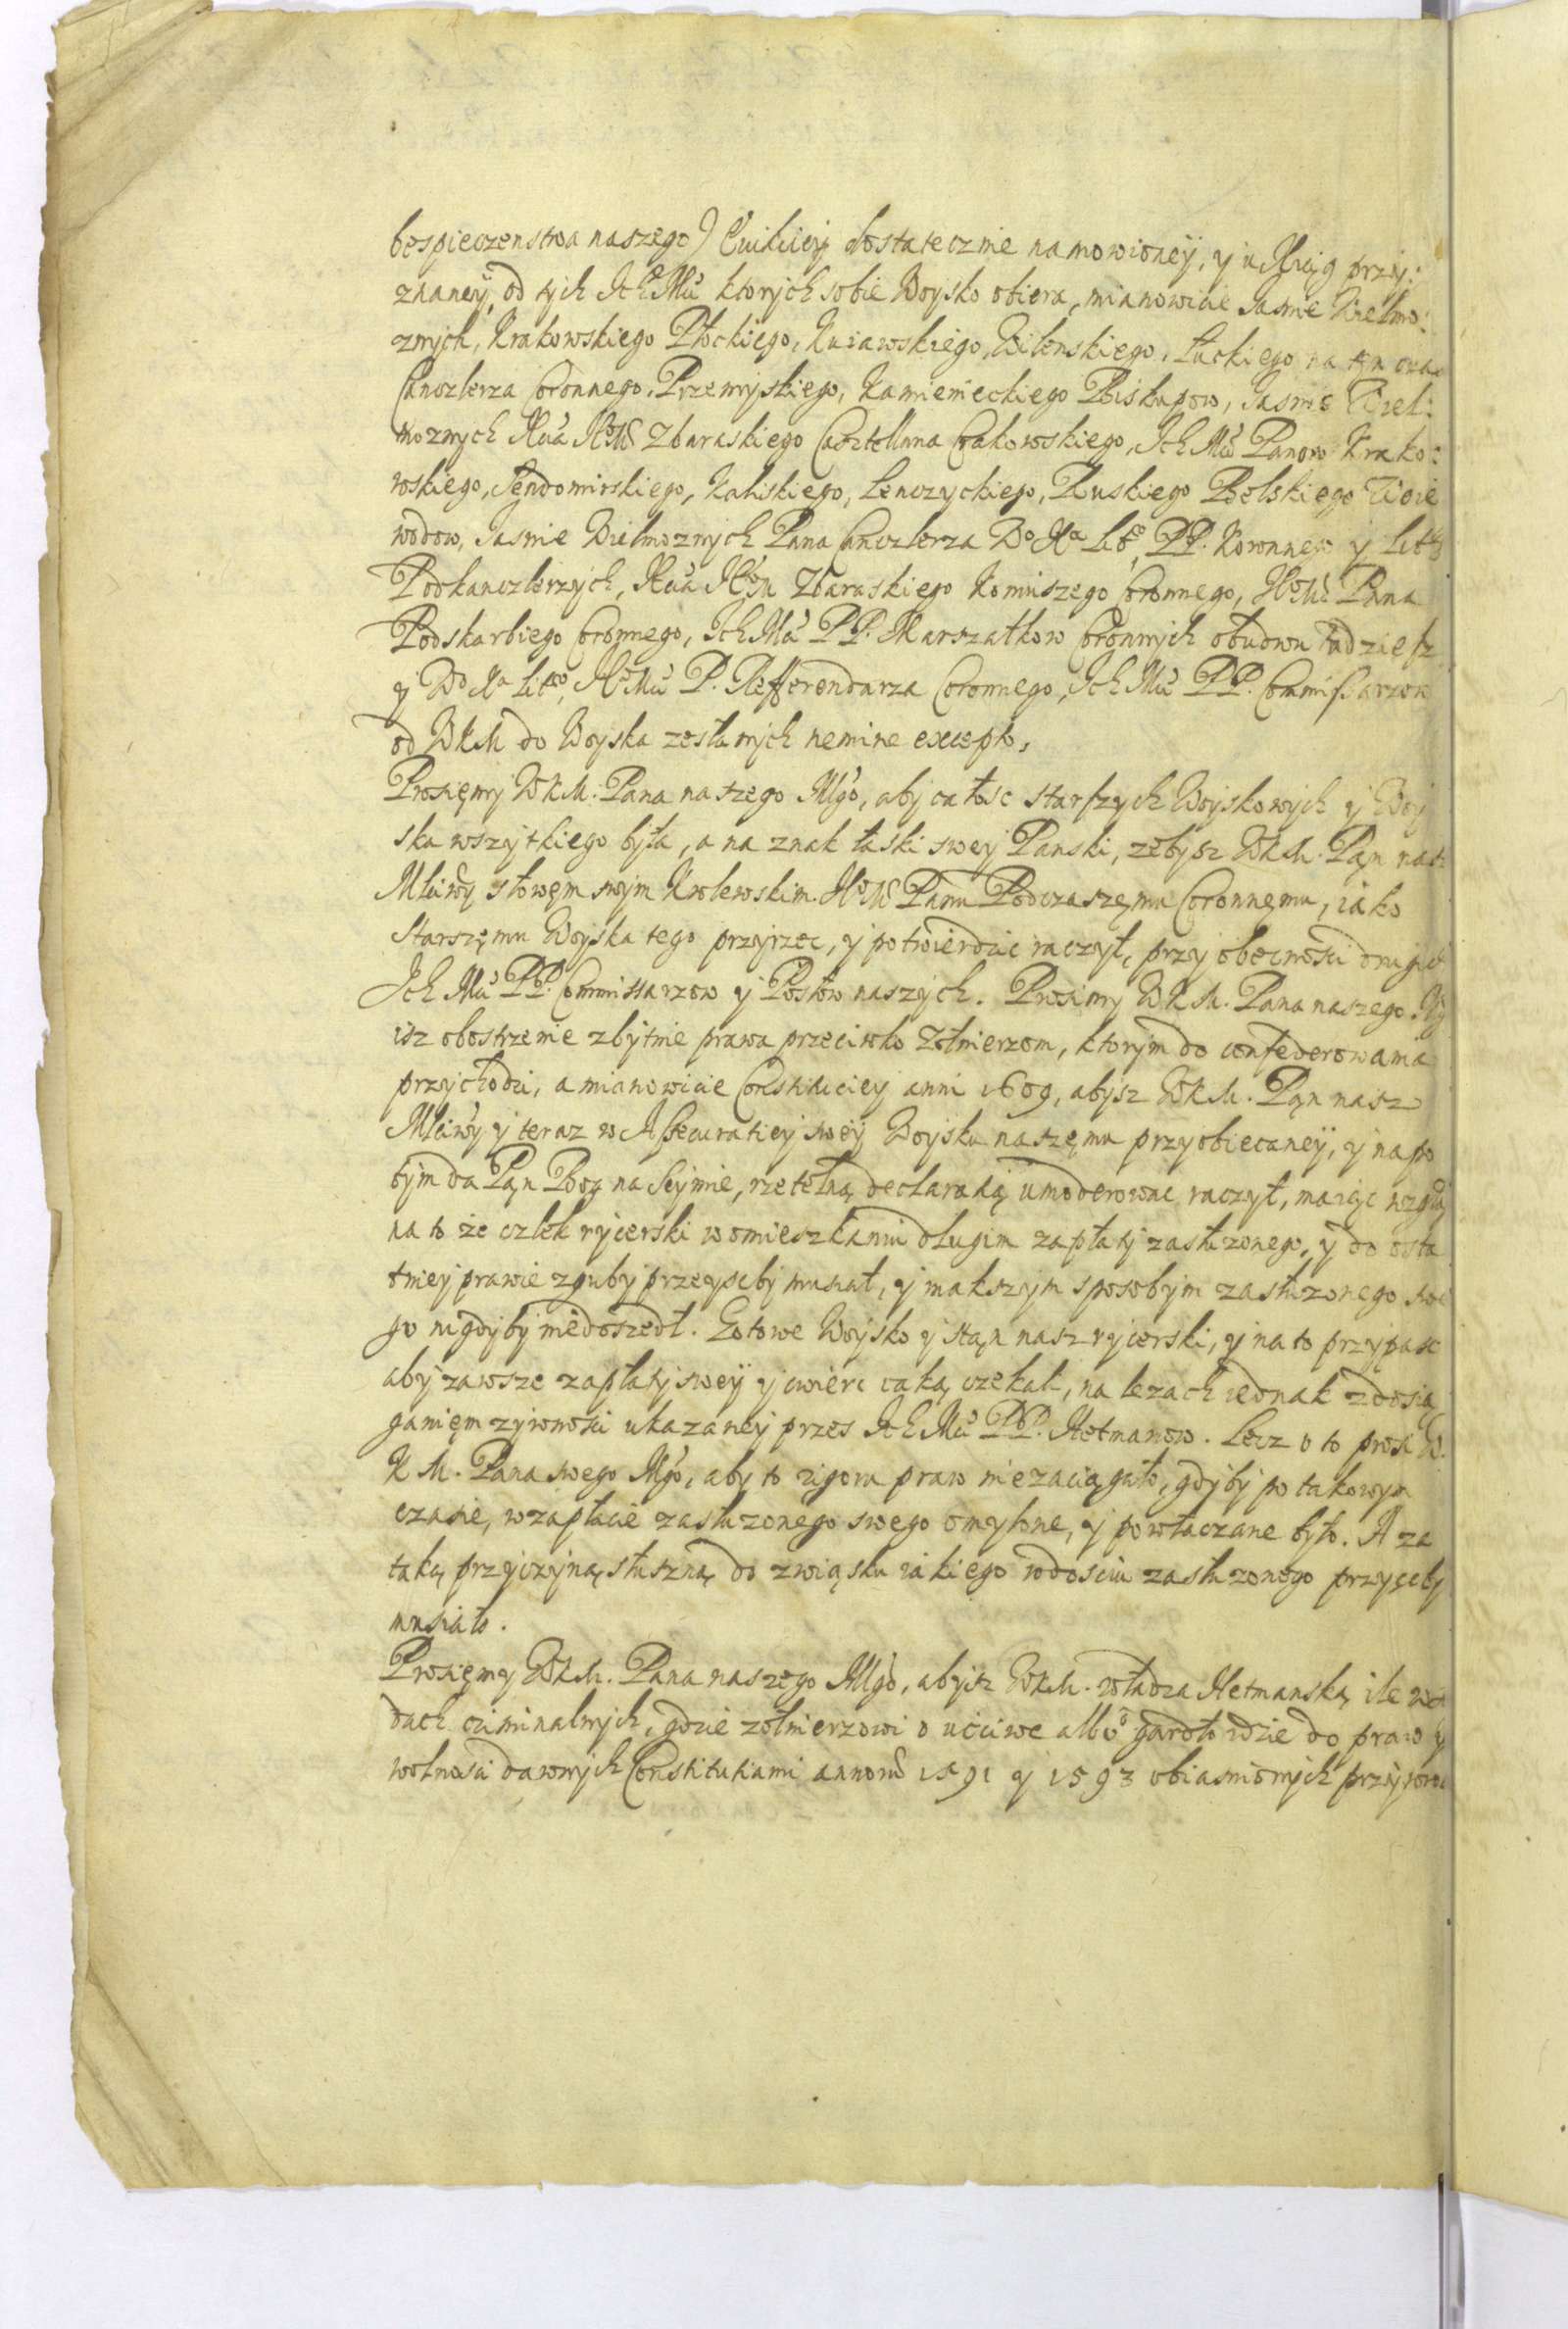 bespieczenstwa naszego) dostatecznie namowioney, y u przy:
znaney, od tych IchMci ktorych sobie Woysko obiera, mianowicie Jasnie Wielmo:
znych, Krakowskiego Płockiego, Kuiawskiego, Wilenskiego, Łuckiego na ten czas
Canczlerza Coronnego, Przemyskiego, Kamienieckiego Biskupow, Jasnie Wiel:
moznych Xcia JeoM Zbaraskiego Casztellana Crakowskiego, Ich Mci Panow Krako:
wskiego, Sendomirskiego, Kaliskiego, Lenczyckiego, Ruskiego Belskiego Woie
wodow, Jasnie Wielmoznych Pana Canczlerza Wo Xa Litо, PP. Koronnego y Litgo
Podkanczlerzych, Xcia JeoM Zbaraskiego Koniuszego Coronnego, JeoMci Pana
Podskarbiego Coronnego, Ich Mci PP. Marszałkow Coronnych obudwu tudziesz
y Wo Xa Litgo, JeoMci P. Refferendarza Coronnego, Ich Mci PP. Commissarzow
od WKM do Woyska zesłanych nemine excepto,
Prosięmy WKM. Pana naszego Mgo, aby całosc starszych Woyskowych y Woy
ska wszytkiego była, a na znak łaski swey Panski, zebysz WKM. Pąn nasz
Mściwy słowęm swym Krolewskim JeoM Panu Podczaszęmu Coronnęmu, iako
Starszęmu Woyska tego przyrzec, y potwierdzic raczył, przy obecnosci drugich
Ich Mci PP. Commissarzow y Posłow naszych. Prosimy WKM. Pana naszego
isz obostrzenie zbytnie prawa przeciwko Zołnierzom, ktorym do confederowania
przychodzi, a mianowicie Constituciey anni 1609, abysz WKM. Pąn nasz
Mściwy y teraz w Assecuratiey swey Woysku naszęmu przyobiecaney, y napo
bym da Pąn Bog na Seymie, rzetelną declaratią umoderowac raczył, maiąc wzglą
na to że człek rycerski w omieszkaniu długim zapłaty zasłużonego, y do osta
tniey prawie zguby przeysc by musiał, y inakszym sposobym zasłuzonego swe
go nigdyby niedoszedł. Gotowe Woysko y stąn nasz rycerski, y na to przypasc
aby zawsze zapłaty swey y cwierc całą czekał, na lezach iednak z dosią
ganięm zywnosci ukazaney przes Ich Mci PP. Hetmanow. Lecz o to prosi W.
KM. Pana swego Mgo, aby to rigoru praw niezaciągało, gdyby po takowym
czasie, w zapłacie zasłuzonego swego omylone, y powłaczane było. A za
taką przyczyną słuszną do związku iakiego w dosciu zasłuzonego przyscby
musiało.
Prosięmy WKM. Pana naszego Mgo, abyisz WKM. władza Hetmanską ile w
dach criminalnych, gdzie zołnierzowi o ućciwe albo gardło idzie do praw y
wolnosci dawnych Constitutiami annorum 1591 y 1593 obiasnionych